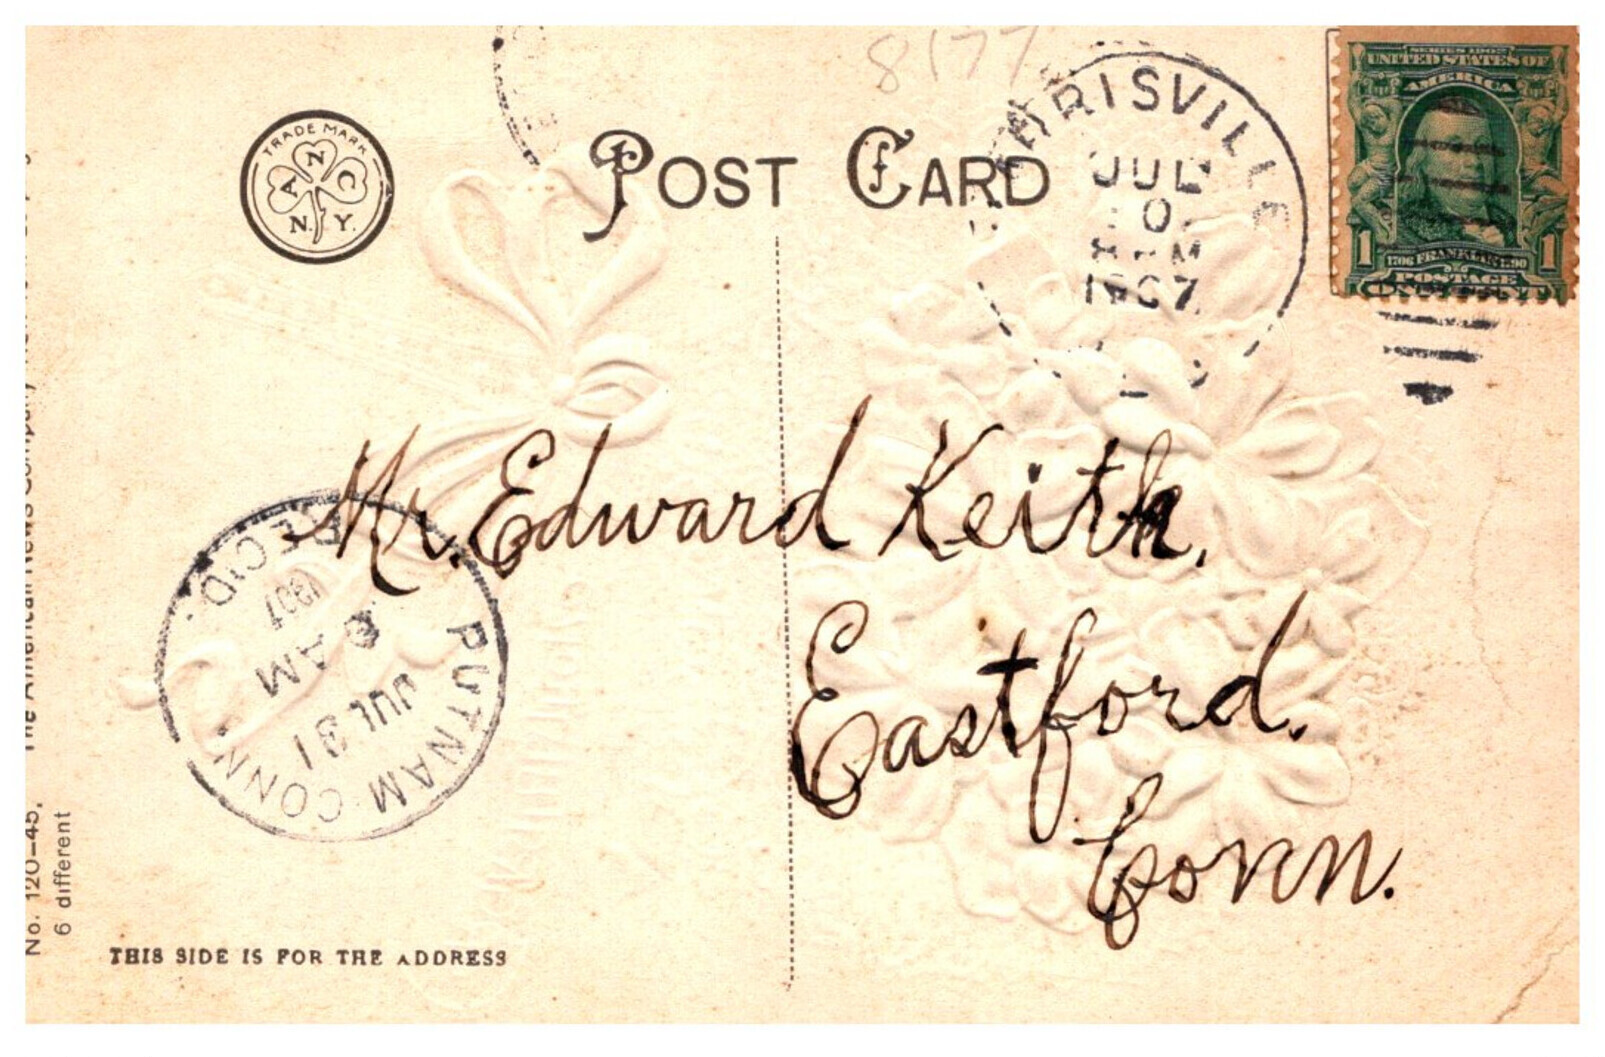 8177
TRADE MARK
A N C
N. Y.
POST CARD
RRISVILLE
JUL
1907
SERIES 1902
UNITED STATES OF
AMERICA
1 1
1706 FRANKLIN 1790
POSTAGE
ONE CENT
Mr. Edward Keith.
Eastford.
Conn.
PUTNAM CONN.
REC'D.
JUL 31
AM
1907
No. 120-45. The American News Company
6 different
THIS SIDE IS FOR THE ADDRESS